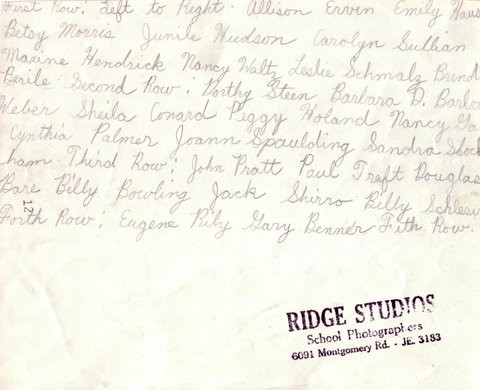 First Row: Left to Right. Allison Ervin Emily Haus
Betsy Morris Junile Hudson Carolyn Sullian
Maxine Hendrick Nancy Waltz Leslie Schmalz Brend
Berile Second Row: Dorthy Steen Barbara D. Barba
Weber Sheila Conard Peggy Holand Nancy Ga
Cynthia Palmer Joann Spaulding Sandra Stock
ham - Third Row: John Pratt Paul Treft Douglas
Bare Billy Bowling Jack Shirro Billy Schlesw
12
Forth Row: Eugene Rily Gary Benner Fith Row.
RIDGE STUDIOS
School Photographers
6091 Montgomery Rd. - JE. 3183